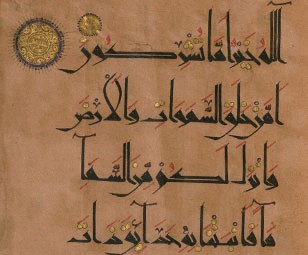 آلله خير أما يشركون
أمن خلق السموات والأرض
وأنزل لكم من السماء
ماء فأنبتنا به حدائق ذات